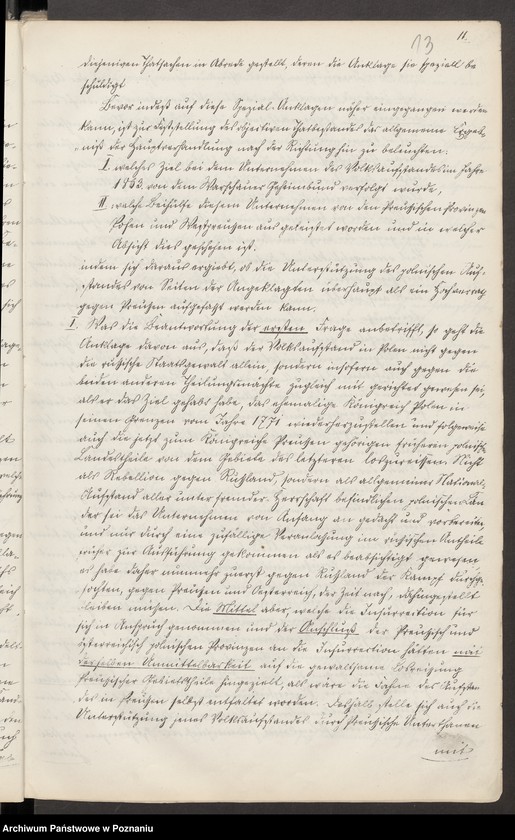 13
11.
diejenigen Thatsachen in Abrede gestellt, deren die Anklage sie speziell be
schuldigt
Bevor indeß auf diese Spezial-Anklagen näher eingegangen werden
kann, ist zur Feststellung des objectiven Thatbestandes das allgemeine Ergeb-
niß der Hauptverhandlung nach der Richtung hin zu beleuchten:
I. welches Ziel bei dem Unternehmen des Volksaufstandes im Jahre
1863. von dem Warschauer Geheimbund verfolgt wurde,
II. welche Beihülfe diesem Unternehmen von den Preußischen Provinzen
Posen und Westpreußen aus geleistet worden und in welcher
Absicht dies geschehen ist.
indem sich daraus ergiebt, ob die Unterstützung des polnischen Auf-
standes von Seiten der Angeklagten überhaupt als ein Hochverrath
gegen Preußen aufgefaßt werden kann.
I. Was die Beantwortung der ersten Frage anbetrifft, so geht die
Anklage davon aus, daß der Volksaufstand in Polen nicht gegen
die russische Staatsgewalt allein, sondern insofern auch gegen die
beiden anderen Theilungsmächte zugleich mit gerichtet gewesen sei,
als er das Ziel gehabt habe, das ehemalige Königreich Polen in
seinen Grenzen vom Jahre 1771 wiederherzustellen und folgeweise
auch die jetzt zum Königreiche Preußen gehörigen früheren polnisch.
Landestheile von dem Gebiete des letzteren loszureißen. Nicht
als Rebellion gegen Rußland, sondern als allgemeiner National-
Aufstand aller unter fremder Herrschaft befindlichen polnischen Län
der sei das Unternehmen von Anfang an gedacht und vorbereitet
und nur durch eine zufällige Veranlassung im russischen Antheile
früher zur Ausführung gekommen als es beabsichtigt gewesen
es habe daher nunmehr zuerst gegen Rußland der Kampf durchge-
fochten, gegen Preußen und Oesterreich, der Zeit nach, dahingestellt
bleiben müssen. Die Mittel aber, welche die Insurrection für
sich in Anspruch genommen und der Anschluß der Preußisch und
österreichisch polnischen Provinzen an die Insurrection hätten mit
derselben Unmittelbarkeit auf die gewaltsame Losreißung
Preußischer Gebietstheile hingezielt, als wäre die Fahne des Aufstan
des in Preußen selbst entfaltet worden. Deshalb stelle sich auch die
Unterstützung jenes Volksaufstandes durch Preußische Unterthanen
mit
Archiwum Państwowe w Poznaniu